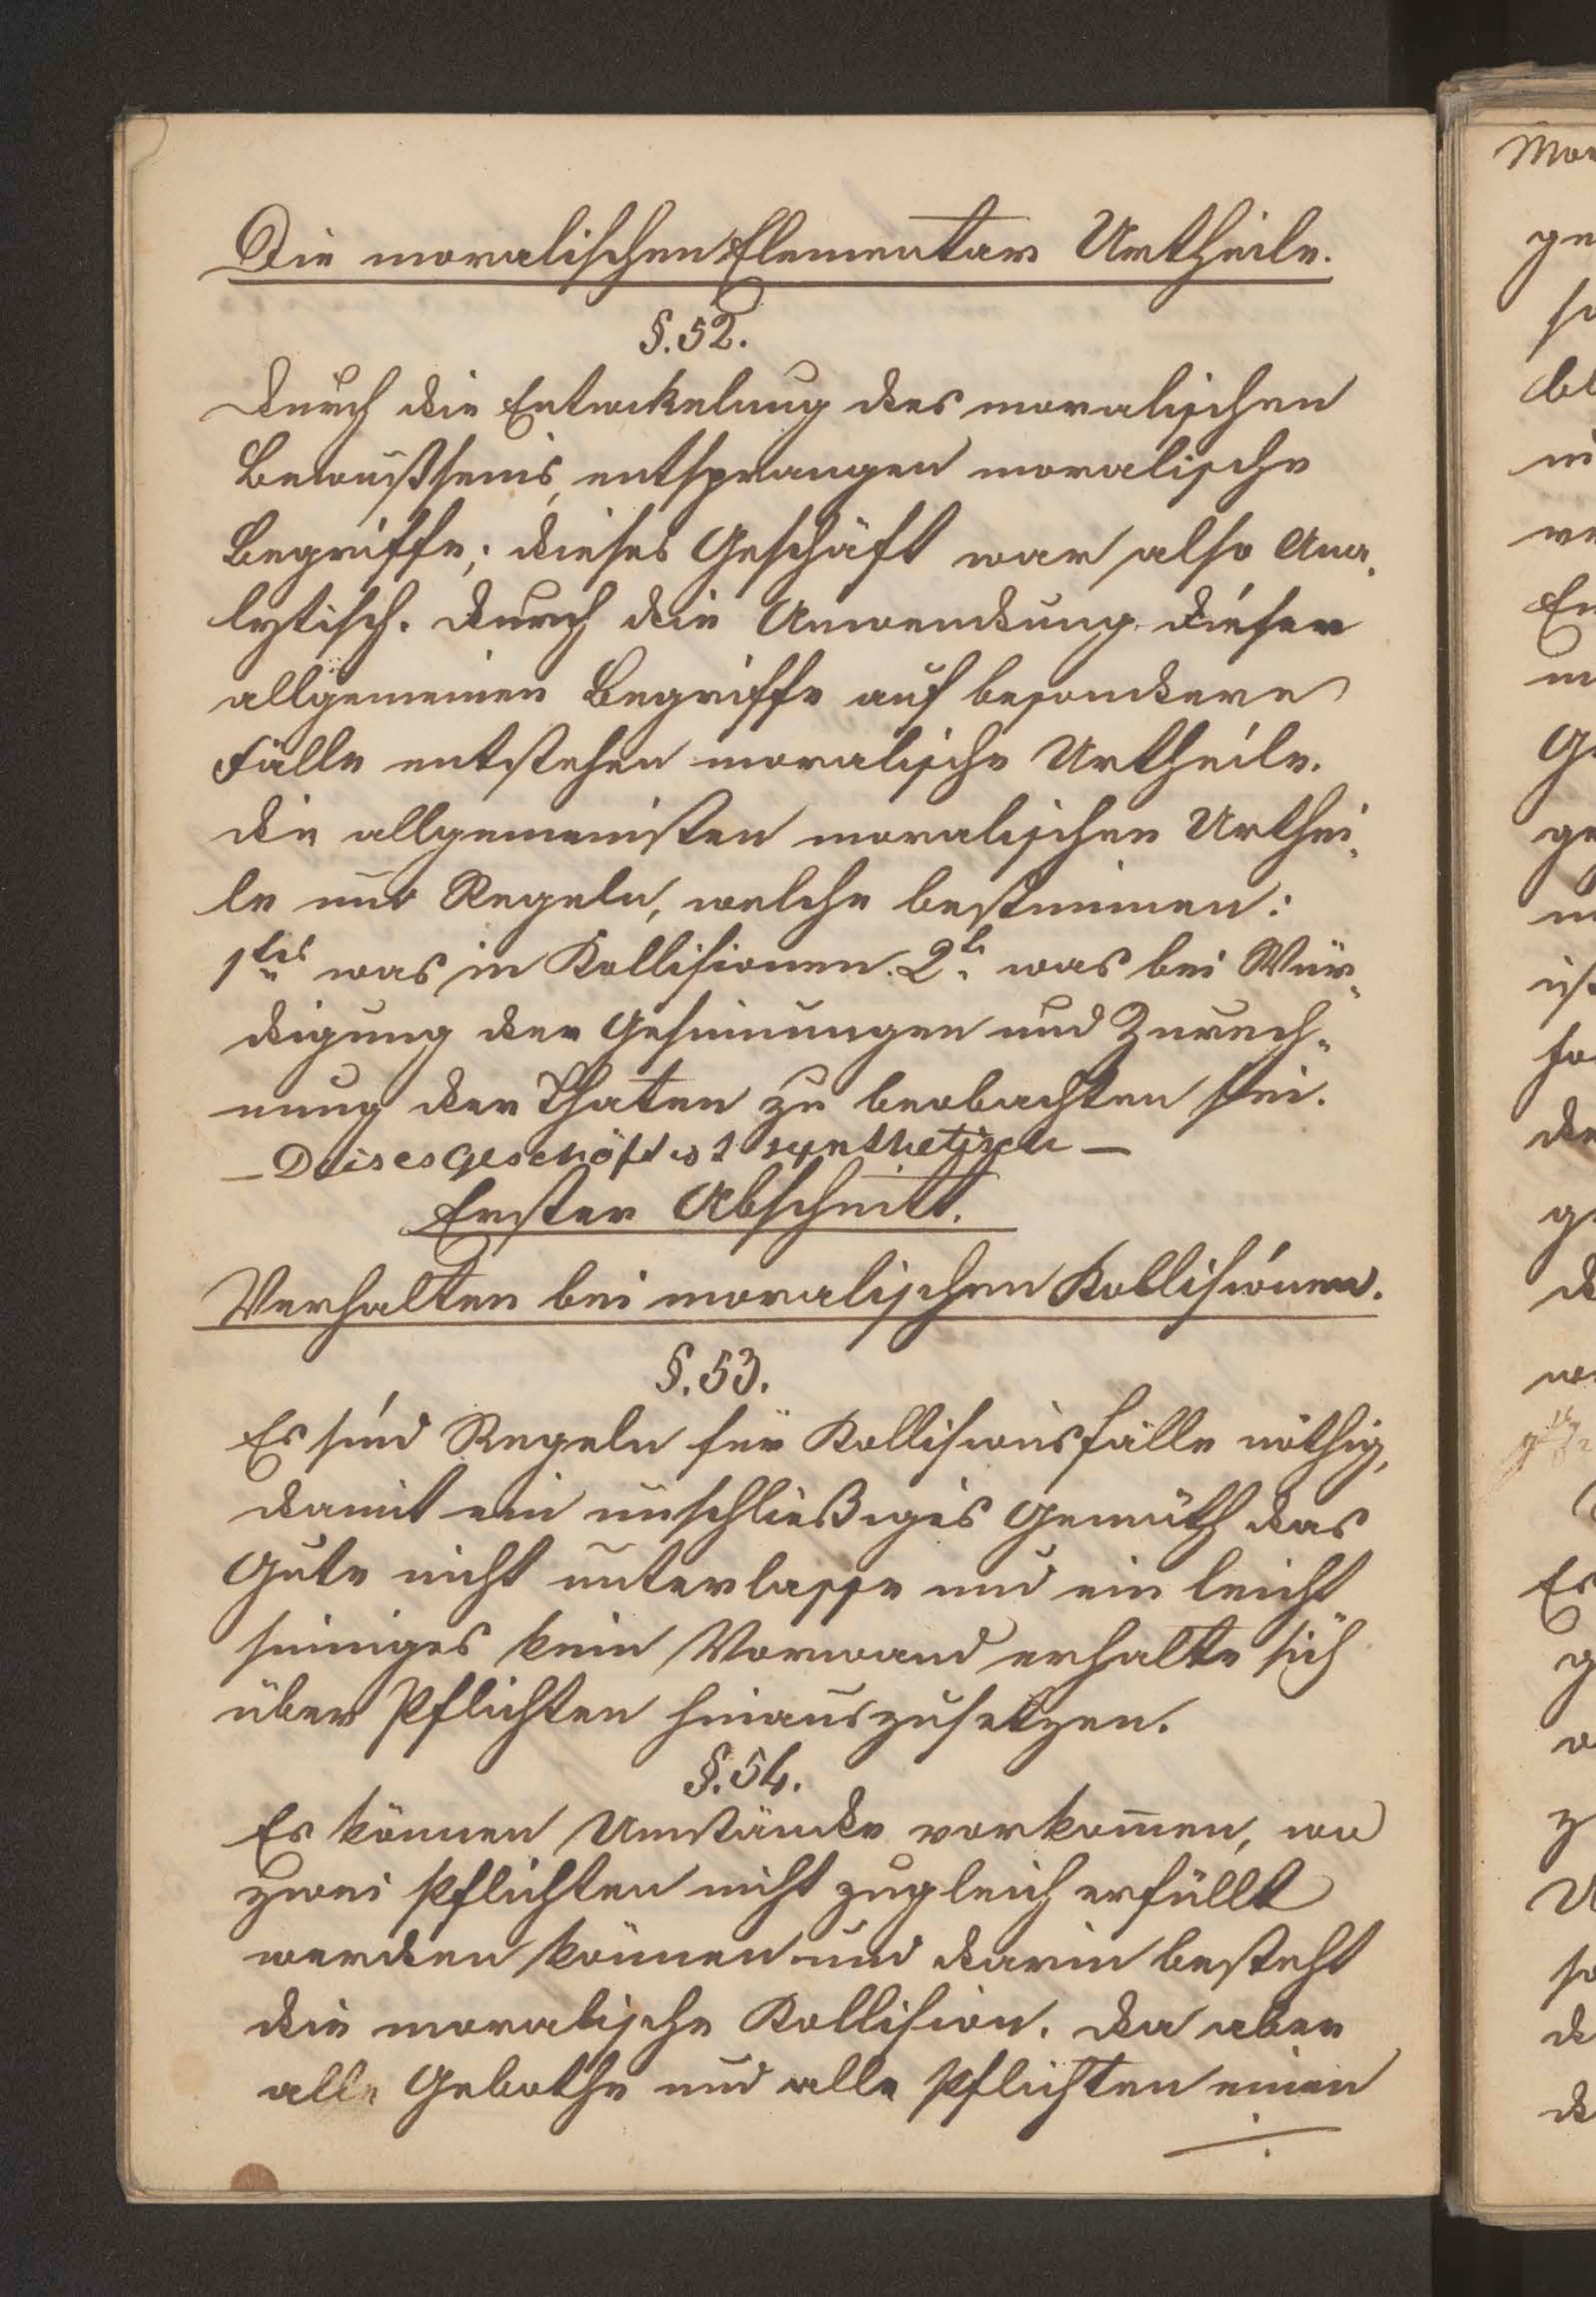 Die moralischen Elementar Urtheile.
§. 52.
Durch die Entwickelung des moralischen
Bewußtseins, entsprangen moralische
Begriffe; dieses Geschäft war also Ana-
lytisch. Durch die Anwendung dieser
allgemeinen Begriffe auf besondere
Fälle entstehen moralische Urtheile.
Die allgemeinsten moralischen Urthei-
le sind Regeln, welche bestimmen:
1tens was in Kollisionen. 2t. was bei Wür-
digung der Gesinnungen und Zurech-
nung der Thaten zu beobachten sei.
– Dieses Geschäft ist synthetisch –
Erster Abschnitt.
Verhalten bei moralischen Kollisionen.
§. 53.
Es sind Regeln für Kollisionsfälle nöthig,
damit ein unschließiges Gemüth das
Gute nicht unterlasse und ein leicht
sinniges kein Vorwand erhalte sich
über Pflichten hinauszusetzen.
§. 54.
Es können Umstände vorkommen, wo
zwei Pflichten nicht zugleich erfüllt
werden können und darin besteht
die moralische Kollision. Da aber
alle Gebothe und alle Pflichten einen